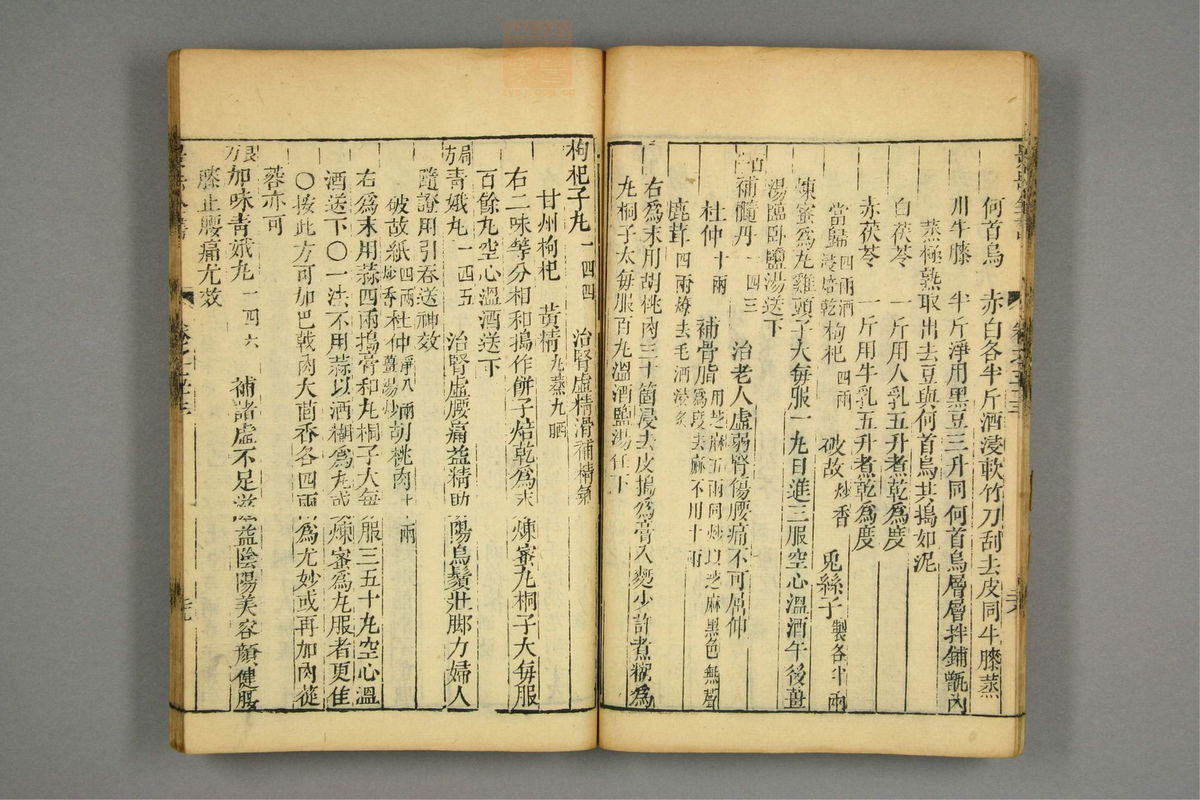 何首烏 赤白各半斤酒浸軟竹刀刮去皮同牛膝蒸
川牛膝 半斤淨用黑豆三升同何首烏層層拌鋪甑內
蒸極熟取出去豆與何首烏共搗如泥
白茯苓 一斤用人乳五升煮乾為度
赤茯苓 一斤用牛乳五升煮乾為度
當歸 四兩酒浸焙乾 枸杞 四兩 破故 炒香 兎絲子 製各半兩
煉蜜為丸雞頭子大每服一丸日進三服空心溫酒午後薑
湯臨卧鹽湯送下
補髓丹 一四三 治老人虛弱腎傷腰痛不可屈伸
杜仲 十兩 補骨脂 用芝麻五兩同炒以芝麻黑色無聲為度去麻不用十兩
鹿茸 四兩燎去毛酒浸炙
右為末用胡桃肉三十箇浸去皮搗為膏入麪少許煮糊為
丸桐子大每服百丸溫酒鹽湯任下
枸杞子丸 一四四 治腎虛精滑補精氣
甘州枸杞 黃精 九蒸九晒
右二味等分相和搗作餅子焙乾為末 煉蜜丸桐子大每服
百餘丸空心溫酒送下
局方 青娥丸 一四五 治腎虛腰痛益精助陽烏鬚壯脚力婦人
隨證用引吞送神效
破故紙 四兩炒香 杜仲 淨八兩薑湯炒 胡桃肉 十兩
右為末用蒜四兩搗膏和丸桐子大每服三五十丸空心溫
酒送下○一法不用蒜以酒糊為丸或煉蜜為丸服者更佳
○按此方可加巴戟肉大茴香各四兩為尤妙或再加肉蓯
蓉亦可
良方 加味青娥丸 一四六 補諸虛不足滋益陰陽美容顏健腰
膝止腰痛尤效